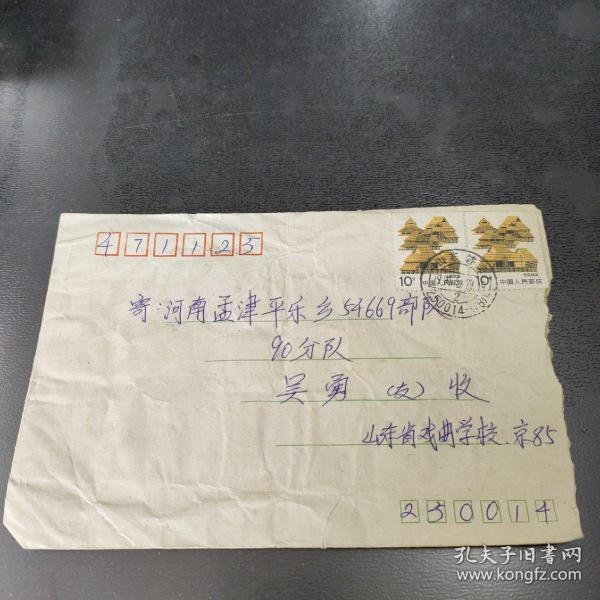 471123
10分 中国人民邮政
10分 中国人民邮政
寄:河南孟津平乐乡54669部队
90分队
吴勇(友)收
山东省戏曲学校.京85
250014
孔夫子旧书网
www.kongfz.com